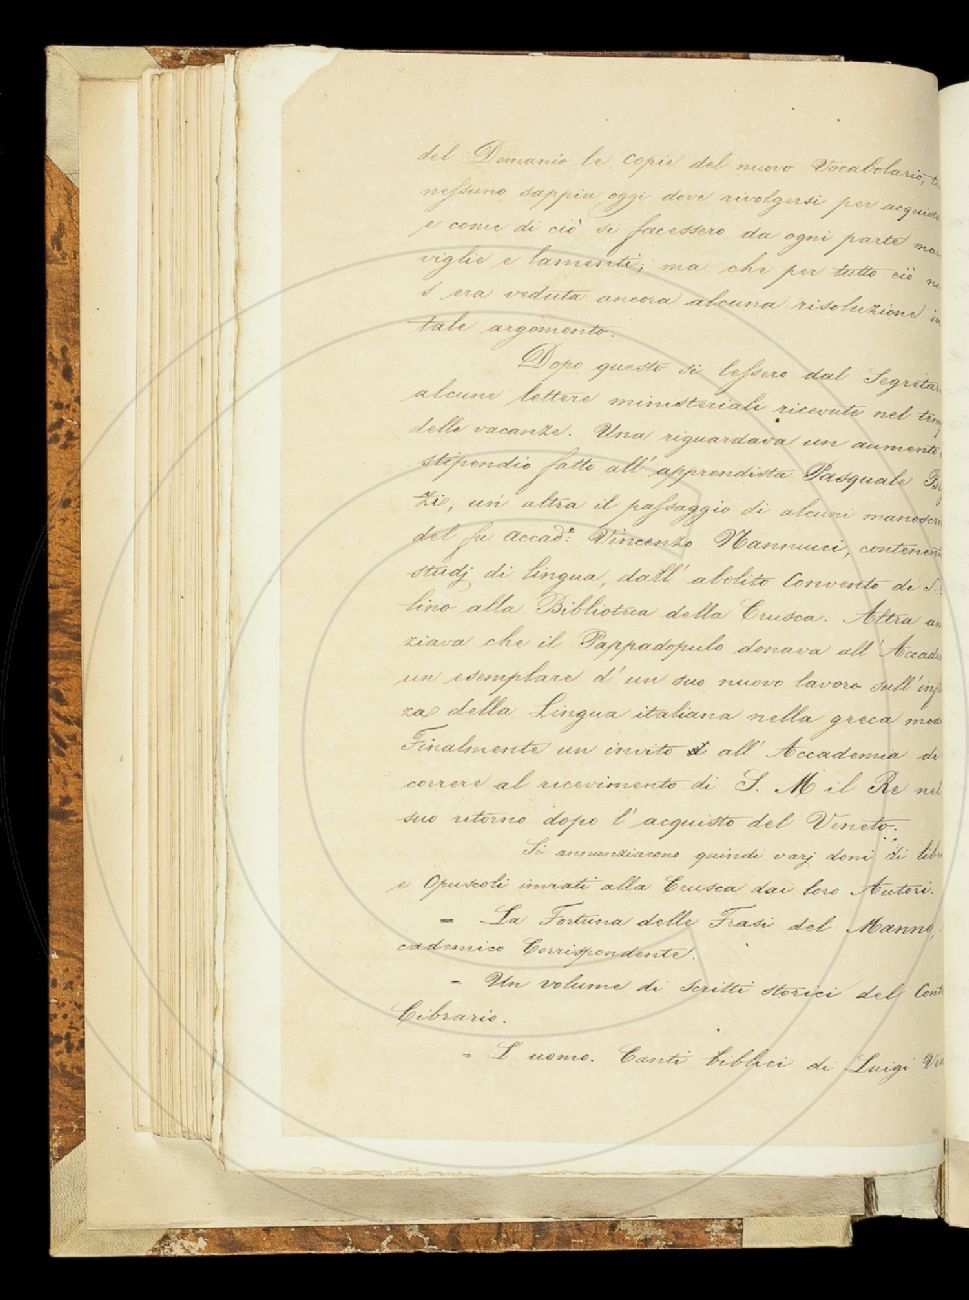 del Demanio le copie del nuovo Vocabolario,
nessuno sappia oggi dove rivolgersi per acquista
e come di ciò si facessero da ogni parte mar
viglie e lamenti; ma che per tutto ciò
s'era veduta ancora alcuna risoluzione in
tale argomento.
Dopo questo si lessero dal Segretar
alcune lettere ministeriali ricevute nel tem
delle vacanze. Una riguardava un aumento
stipendio fatto all'apprendista Pasquale
zi, un'altra il passaggio di alcuni manoscri
del fu Accad.º Vincenzo Nannucci, contenent
studj di lingua, dall'abolito Convento di S.
lino alla Biblioteca della Crusca. Altra an
ziava che il Pappadopulo donava all'Accad
un esemplare d'un suo nuovo lavoro sull'inf
za della Lingua italiana nella greca mod
Finalmente un invito all'Accademia di
correre al ricevimento di S. M il Re nel
suo ritorno dopo l'acquisto del Veneto.
Si annunziarono quindi varj doni di libr
e Opuscoli inviati alla Crusca dai loro Autori.
= La Fortuna delle Frasi del Manno,
cademico Corrispondente.
= Un volume di scritti storici del Cont
Cibrario.
= L'uomo. Canti biblici di Luigi